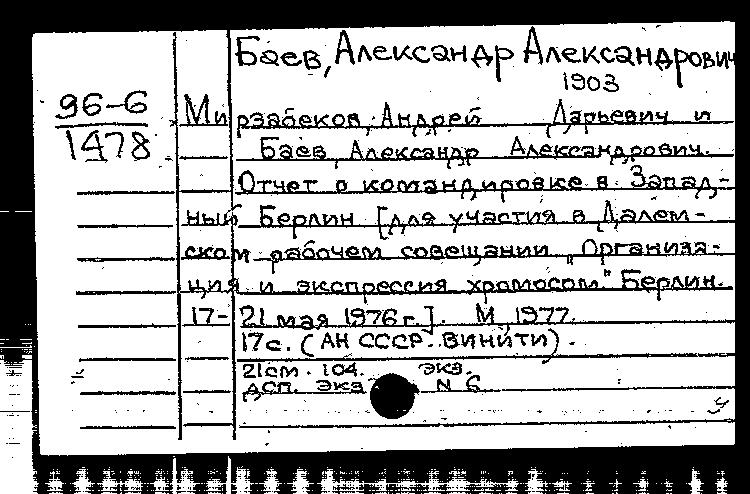 Баев, Александр Александрович
1903
96-6
1478
Мирзабеков, Андрей Дарьевич и
Баев, Александр Александрович.
Отчет о командировке в Запад-
ный Берлин [для участия в Далем-
ском рабочем совещании „Организа-
ция и экспрессия хромосом" Берлин.
17-21 мая 1976г.]. М., 1977.
17с. (АН СССР. ВИНИТИ).
21см. 104. экз.
ДСП. Экз. N 6